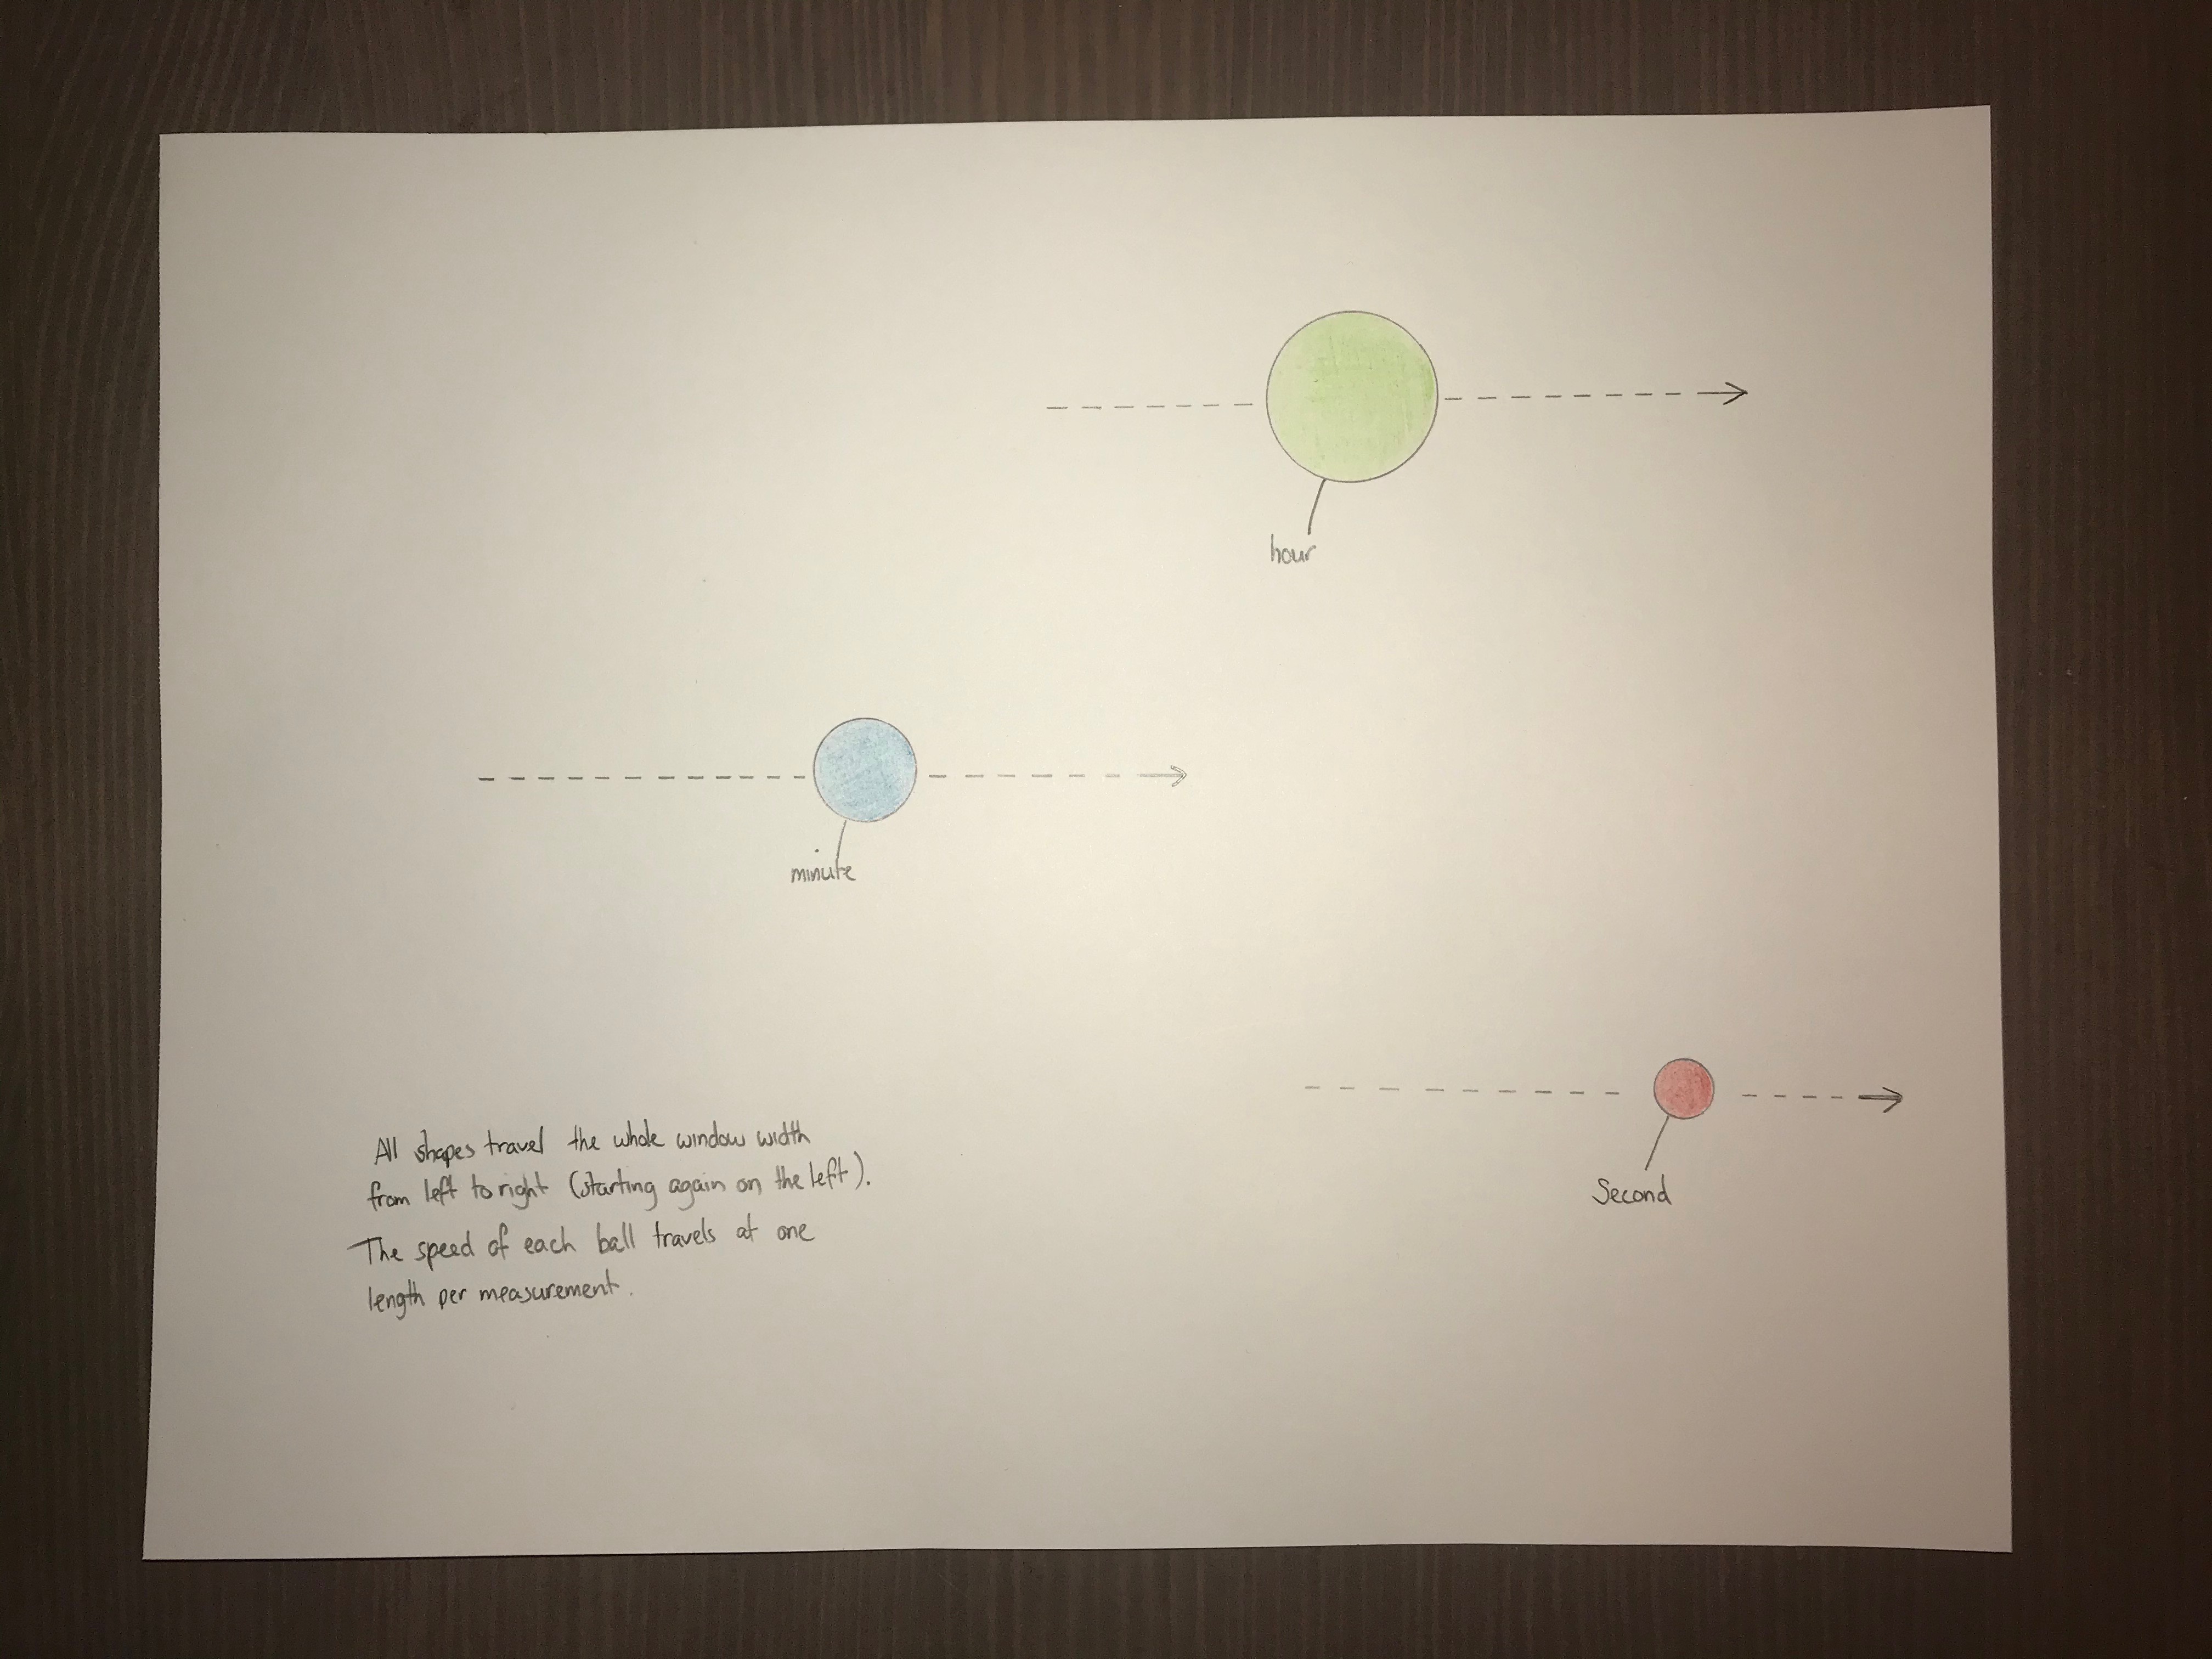 hour
minute
Second
All shapes travel the whole window width
from left to right (starting again on the left).
The speed of each ball travels at one
length per measurement.